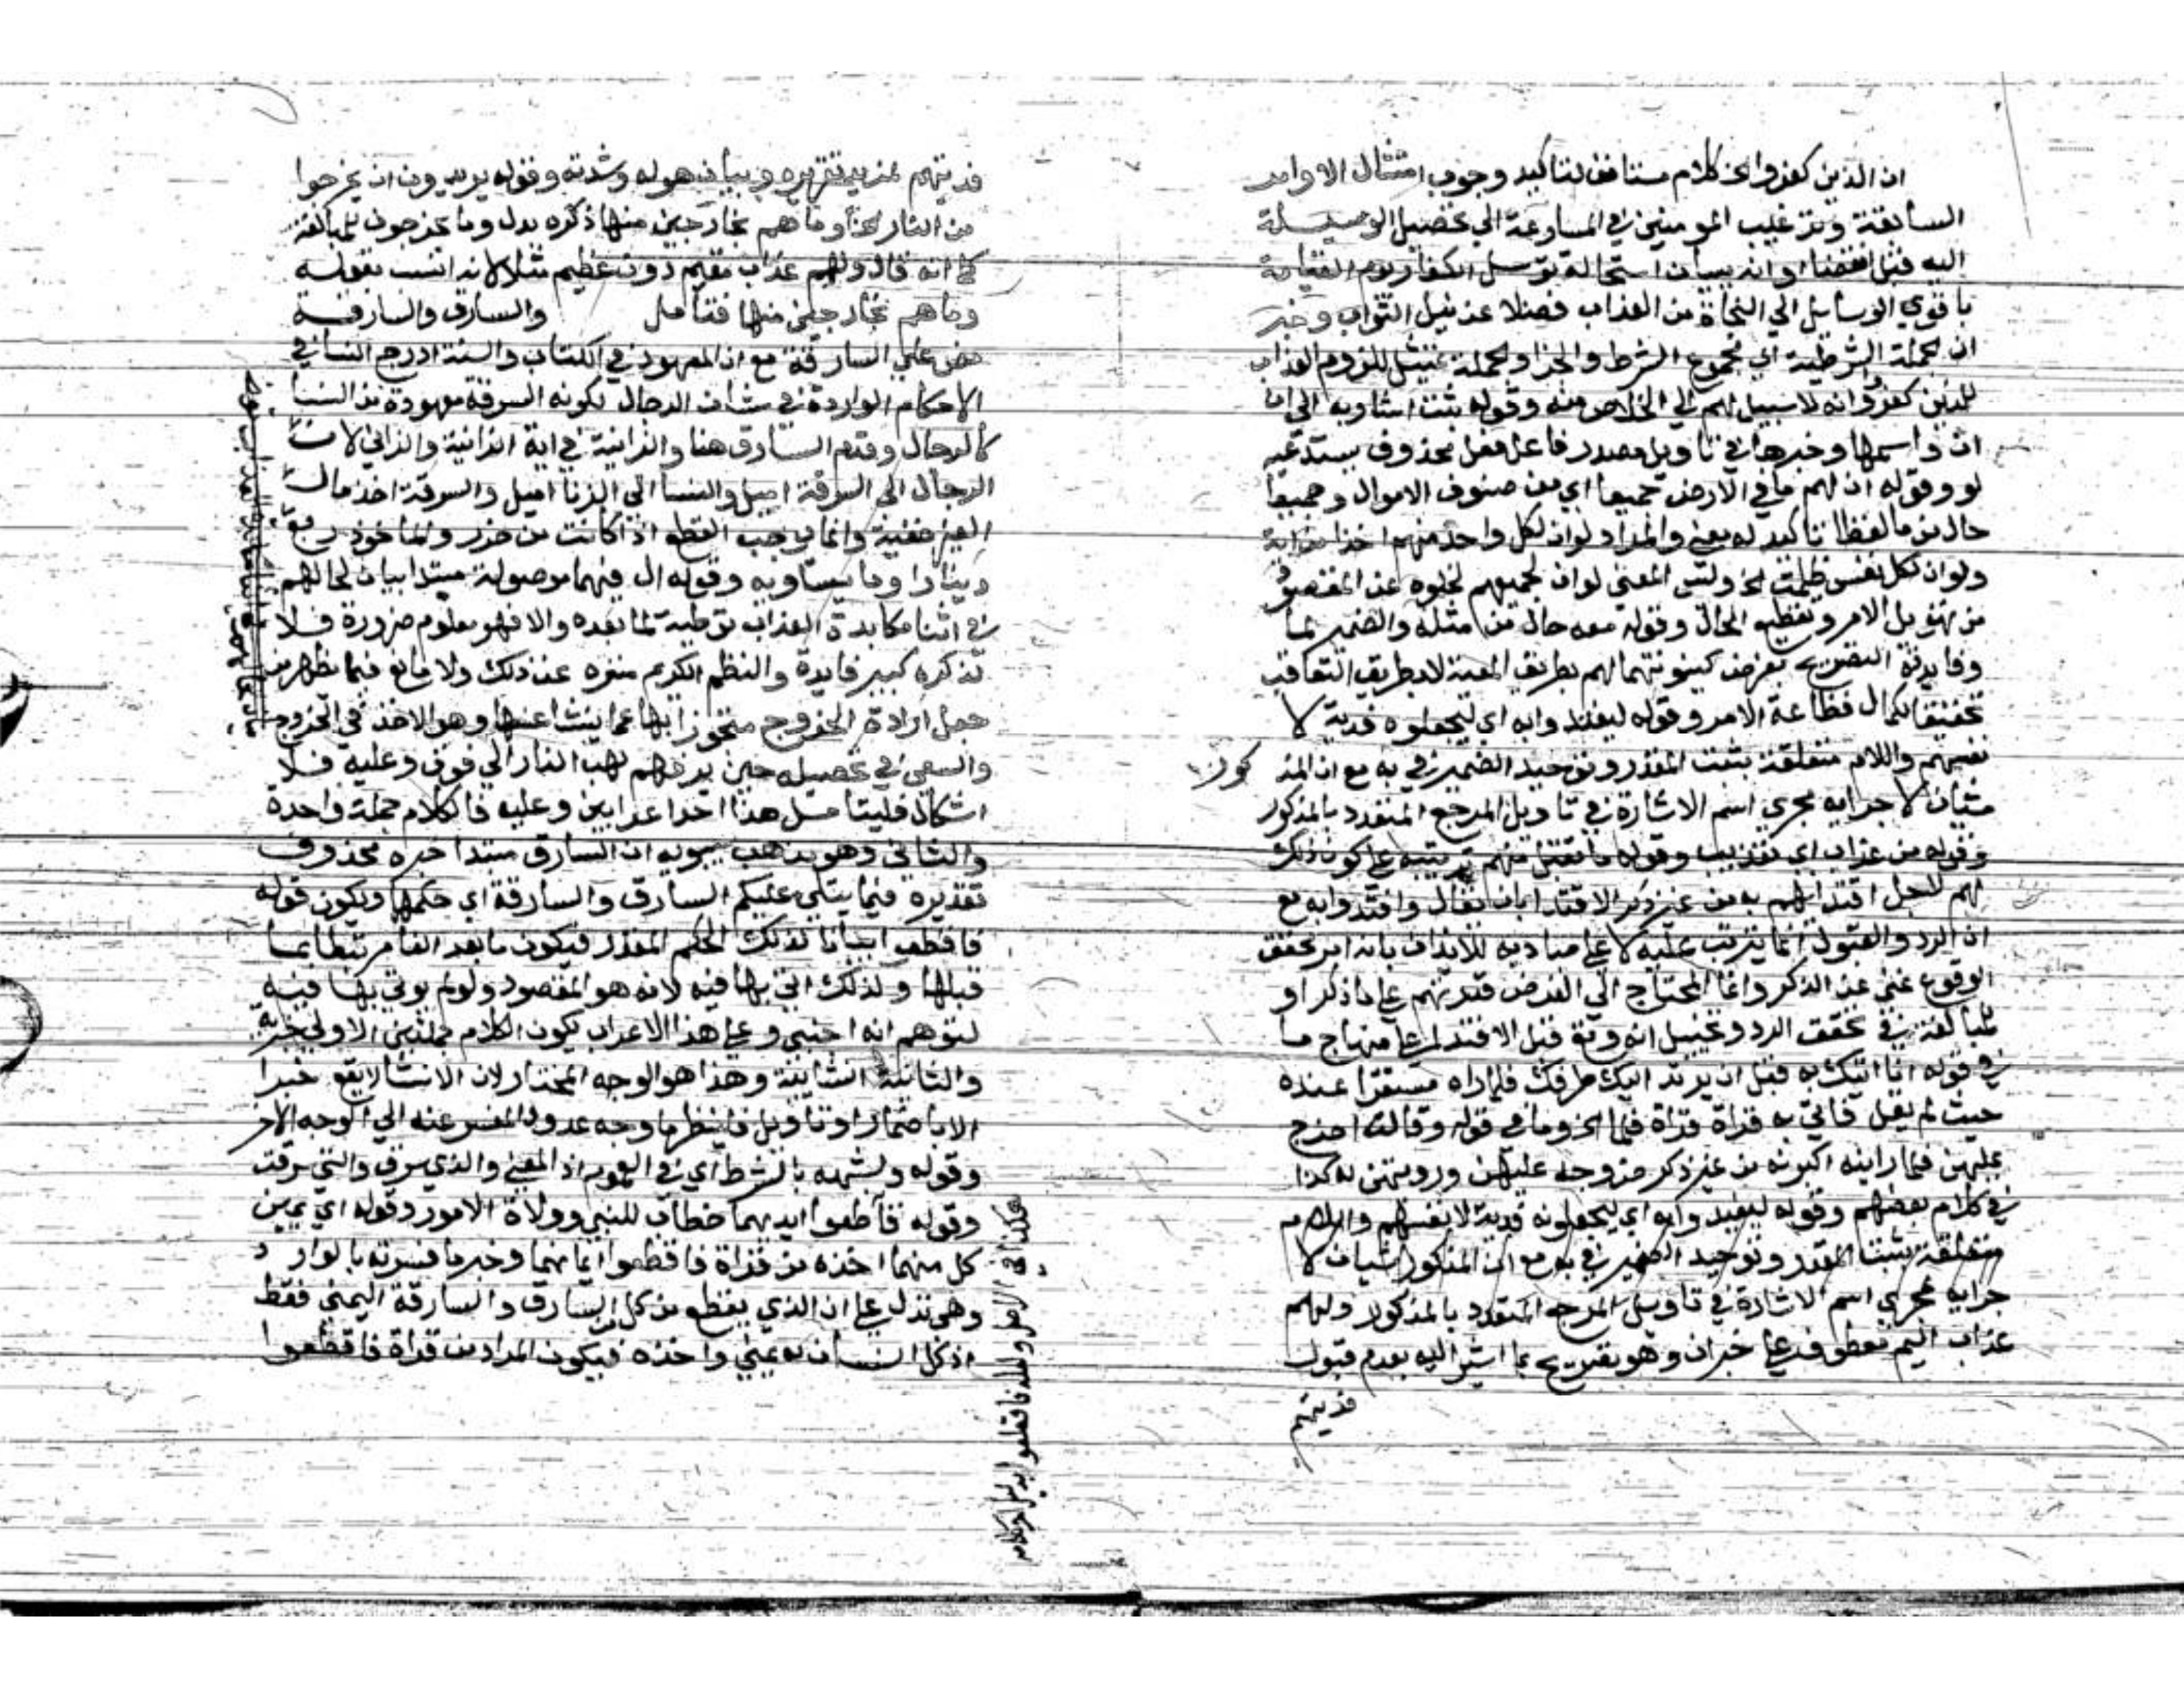 ان الذين كفروا الخ كلام مستانف لتاكيد وجوب امتثال الاوامر
السابقة وترغيب المومنين في المسارعة الي تحصيل الوسيلة
اليه قبل انقضا اوانه ببيان استحالة توسل الكفار يوم القيامة
باقوي الوسايل الي النجاة من العذاب فضلا عن نيل الثواب وخبر
ان الجملة الشرطية اي مجموع الشرط والجزا والجملة تمثيل للزوم العذاب
للذين كفروا وانه لاسبيل لهم الي الخلاص منه وقوله ثبت اشاربه الي ان
ان واسمها وخبرها في تاويل مصدر فاعل فعل محذوف يستدعيه
لو وقوله ان لهم ما في الارض جميعا اي من صنوف الاموال وجميعا
حال من ما لفظا تاكيد له معني والمراد لوان لكل واحد منهم اخذا من اية
ولوان لكل نفس ظلمت الخ وليس المعني لوان لجميعهم لخلوه عن المقصود
من تهويل الامر وتفظيع الحال وقوله معه حال من مثله والضمير لما
وفايدته التصريح بفرض كينونتهما لهم بطريق المعية لا بطريق التعاقب
تحقيقا لكمال فظاعة الامر وقوله ليفتدوا به اي ليجعلوه فدية لا
نفسهم واللام متعلقة بثبت المقدر وتوحيد الضمير في به مع ان المذ كور
شيان لاجرايه مجري اسم الاشارة في تاويل المرجع المتعدد بالمذكور
وقوله من عذاب اي تعذيب وقوله ما تقبل منهم ترتيبه علي كون ذلك
لهم لاجل افتدايهم به من غير ذكر الافتدا بان يقال وافتدوا به مع
ان الرد والقبول انما يترتب عليه لا علي مباديه للايذان بانه امر محقق
الوقوع غني عن الذكر وانما المحتاج الي الفرض قدرتهم علي ماذكر او
للمبالغة في تحقق الرد وتخييل انه وقع قبل الافتدا علي منهاج ما
في قوله انا اتيك به قبل ان يرتد اليك طرفك فلما راه مستقرا عنده
حيث لم يقل فاتي به فراه فلما الخ وما في قوله وقالت اخرج
عليهن فلما راينه اكبرنه من غير ذكر خروجه عليهن ورويتهن له كذا
في كلام بعضهم وقوله ليفتدوا به اي ليجعلونه فدية لانفسهم واللام
متعلقة بثبت المقدر وتوحيد الضمير في به مع ان المذكور شيان لا
جرايه مجري اسم الاشارة في تاويل المرجع المتعدد بالمذكور ولهم
عذاب اليم معطوف علي خبران وهو تصريح بما اشير اليه بعدم قبول
فديتهم
فديتهم لمزيد تقريره وبيان هوله وشدته وقوله يريدون ان يخرجوا
من النار الخ وما هم بخارجين منها ذكره بدل وما يخرجون للمبالغة
كما انه قال ولهم عذاب مقيم دون عظيم مثلا لانه انسب بقوله
وما هم بخارجين منها فتامل والسارق والسارقة
نص علي السارقة مع ان المعهود في الكتاب والسنة ادرج النسا في
الاحكام الواردة في شان الرجال لكونه السرقة معهودة من النسا
كالرجال وقدم السارق هنا والزانية في اية الزانية والزاني لان
الرجال الي السرقة اميل والنسا الي الزنا اميل والسرقة اخذ مال
الغير خفية وانما يوجب القطع اذا كانت من حرز والماخوذ ربع
دينارا وما يساويه وقوله ال فيهما موصولة مبتدا بيان لحالهم
في اثنا مكابدة العذاب توطية لما بعده والا فهو معلوم ضرورة فلا
تذكره كبير فايدة والنظم الكريم منزه عن ذلك ولا مانع فيما يظهر من
جعل ارادة الخروج متجوزا بها عما ينشا عنها وهو الاخذ في الخروج
والسعي في تحصيله حين يرفعهم لهب النار الي فوق وعليه فلا
اشكال فليتامل هذا احد اعرابين وعليه فالكلام جملة واحدة
والثاني وهو مذهب سيبويه ان السارق مبتدا خبره محذوف
تقديره فيما يتلي عليكم السارق والسارقة اي حكمهما ويكون قوله
فاقطعوا بيانا لذلك الحكم المقدر فيكون مابعد الفا مرتبطا بما
قبلها ولذلك اتي بها فيه لانه هو المقصود ولو لم يوتي بها فيه
لتوهم انه اجنبي وعلي هذا الاعراب يكون الكلام جملتين الاولي خبرية
والثانية انشايية وهذا هو الوجه المختار لان الانشا لا يقع خبرا
الا باضمار او تاويل فلينظر ما وجه عدول المفسر عنه الي الوجه الاخر
وقوله ولشبهه بالشرط اي في العموم اذ المعني والذي سرق والتي سرقت
وقوله فاقطعوا ايديهما خطاب للنبي وولاة الامور وقوله اي يمين
كل منهما اخذه من قراة فاقطعوا ايمانهما وخبر ما فسرته بالوارد
وهي تدل علي ان الذي يقطع من كل السارق والسارقة اليمني فقط
اذ كل انسان له يمني واحدة فيكون المراد من قراة فاقطعوا
هكذا في الاصل